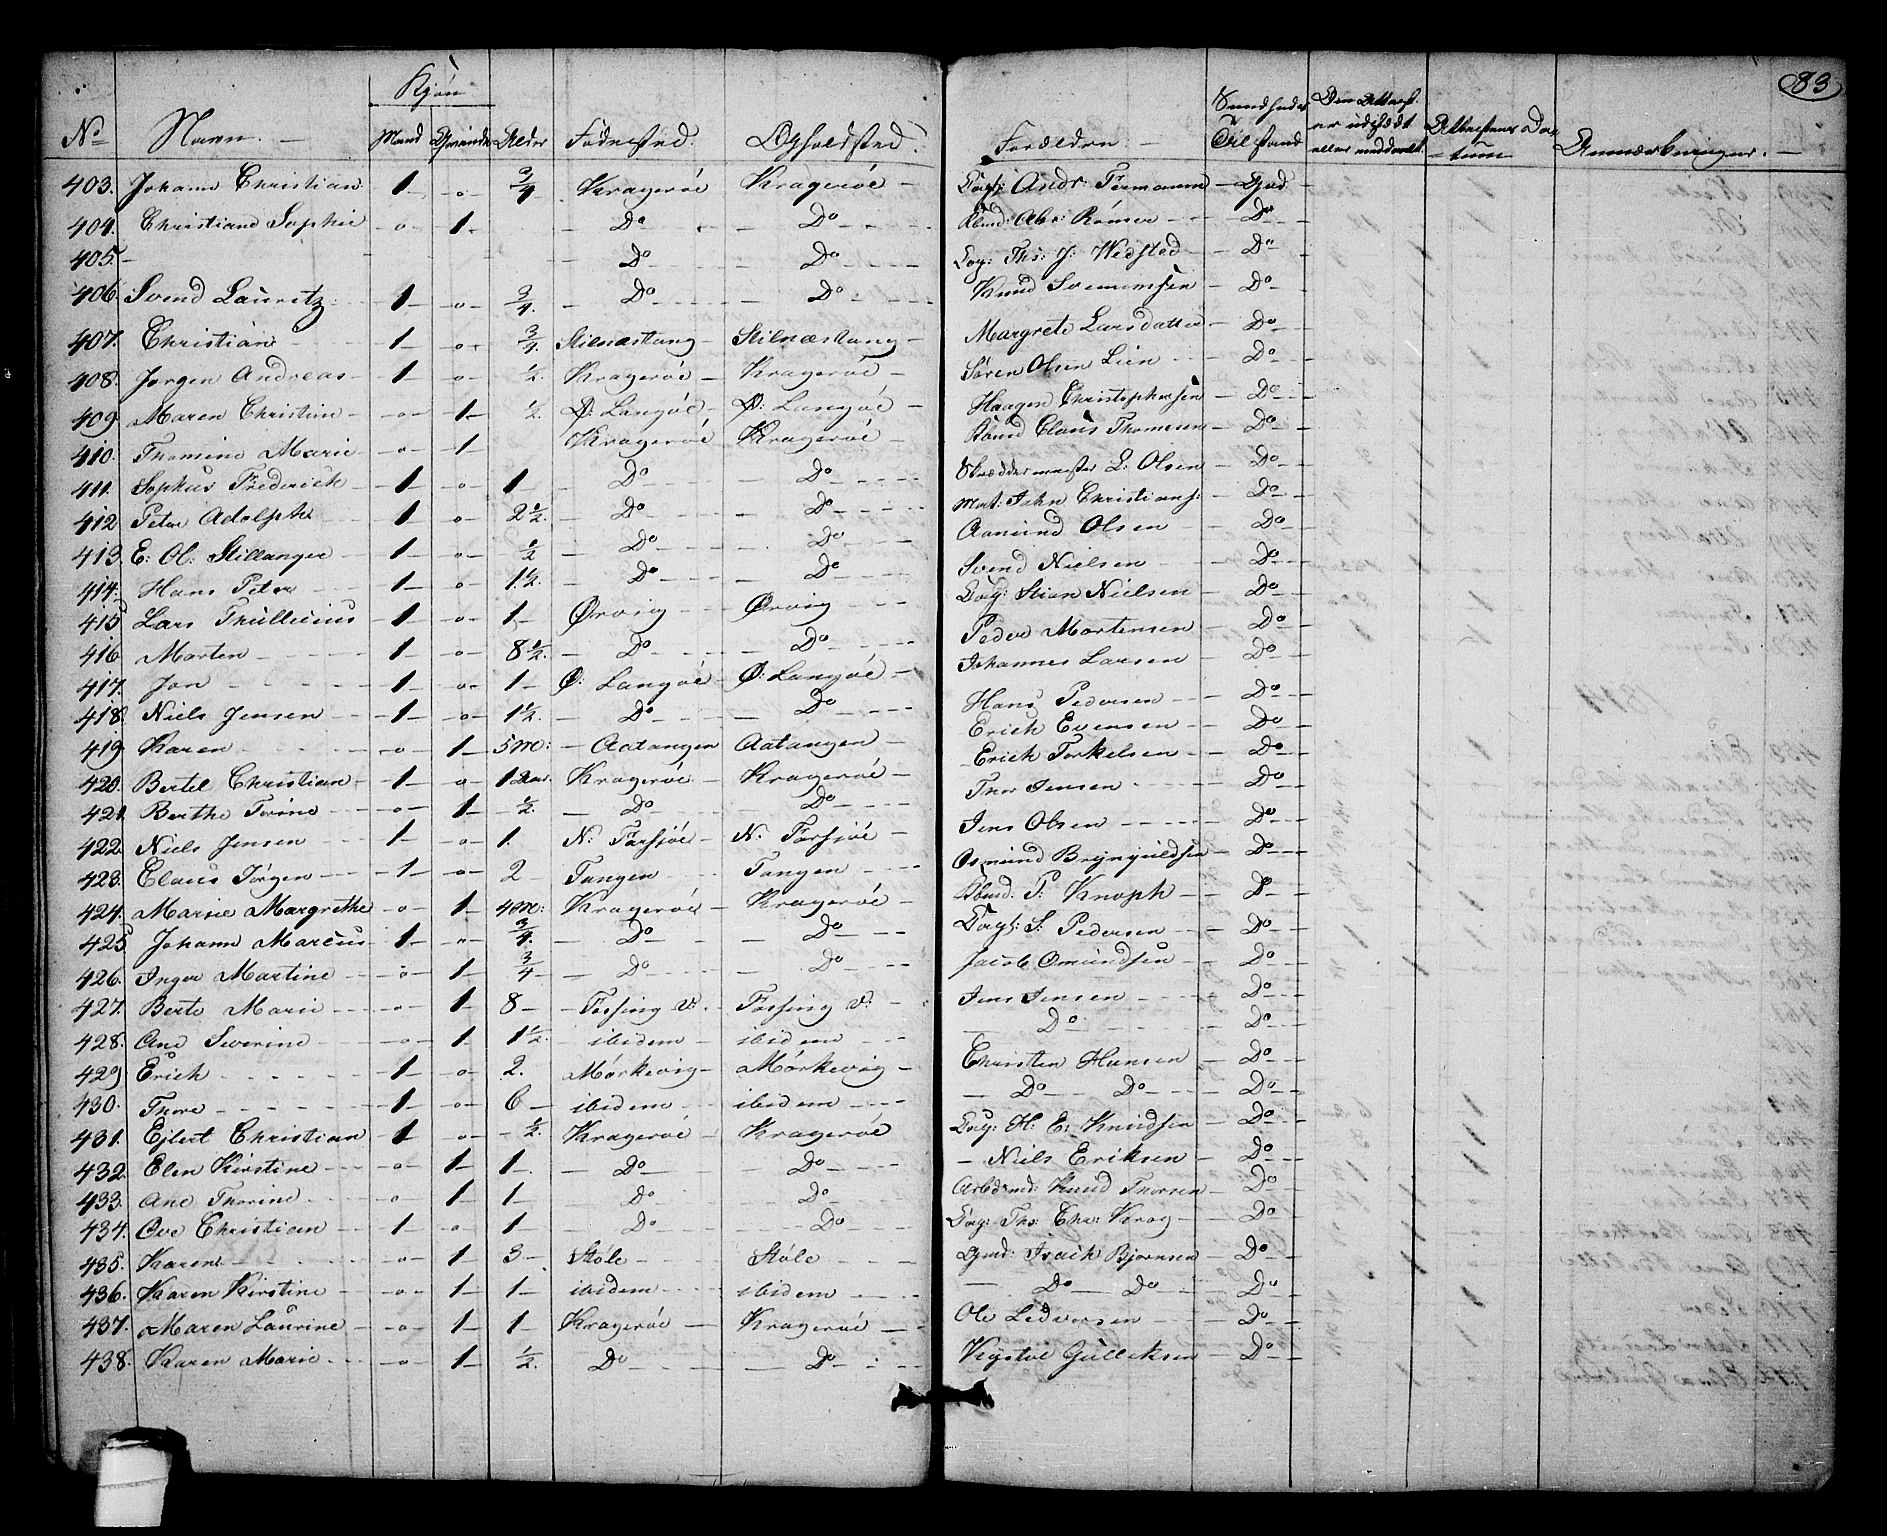 83
Kjön
No Navn. Mand Qvinde Alder Födested. Opholdsted. Forældre. Sundheds Tilstand Anmærkninger.
403. Johann Christian 1 o 3/4 Kragerøe Kragerøe Andr: God
404. Christiand Sophie o 1 Do Do Abr: Römer Do
405. Do Do Ths: J: Wedsted Do
406. Svend Lauritz 1 o 3/4. Do Do Knud Do
407. Christian 1 o 3/4. Stilnæstang Stilnæstang Margrete Larsdatter Do
408. Jørgen Andreas 1 o 1/2. Kragerøe Kragerøe Søren Olsen Lien Do
409. Maren Christine o 1 1/2. Ø: Langøe Ø: Langøe Haagen Christophersen Do
410. Thomine Marie o 1 Kragerøe Kragerøe Claus Thomesen Do
411. Sophus Frederich 1 o 1 Do Do Skræddermester L: Olsen Do
412 Peter Adolph 1 o 2 1/2. Do Do Mat: John Christians: Do
413. E: Ol: Stillanger 1 o 1/2 Do Do Aamund Olsen Do
414. Hans Peter 1 o 1 1/2. Do Do Svend Nielsen Do
415 Lars Thullinius 1 o 1 Ørvig Ørvig Stian Nielsen Do
416 Morten 1 o 8 1/2. Do Do Peder Mortensen Do
417. Jon 1 o 1 Ø: Langøe Ø: Langøe Johannes Larsen Do
418. Niels Jensen 1 o 1 1/2. Do Do Hans Pedersen Do
419. Karen o 1 5 M: Aatangen Aatangen Erich Evensen Do
420. Bertel Christian 1 o 1 Kragerøe Kragerøe Erich Torkelsen Do
421. Berthe Torine o 1 1/2 Do Do Thor Jensen Do
422. Niels Jensen 1 o 1. N: Forsjøe N. Forsjøe Jens Olsen Do
423. Claus Jörgen 1 o 2 Tangen Tangen Osmund Brynjuldsen Do
424. Marie Margrethe o 1 4 M: Kragerøe Kragerøe P: Knoph Do
425 Johann Marcus 1 o 3/4. Do Do S: Pedersen Do
426. Inger Martine o 1 3/4 Do Do Jacob Omundsen Do
427. Berte Marie o 1 8 Fossing v: Fossing v: Jens Jensen Do
428. Ane Severine o 1 1 1/2. ibidem ibidem Do Do
429 Erich 1 o 2. Mørkevig Mørkevig Christen Hansen Do
430. Thore 1 o 6 ibidem ibidem Do Do Do
431. Ejlert Christian 1 o 1/2. Kragerøe Kragerøe H: E: Knudsen Do
432. Elen Kirstine o 1 1 Do Do Niels Eriksen Do
433. Ane Thorine o 1 1 Do Do Arbdsmd: Knud Thorsen Do
434. Ove Christian 1 o 1 Do Do Ths: Chr: Krog Do
435. Karen o 1 3 Støle Støle Isach Bjornsen Do
436. Karen Kirstine o 1 1 ibidem ibidem Do Do Do
437. Maren Laurine o 1 1 Kragerøe Kragerøe Ole Ledvorsen Do
438. Karen Marie o 1 1/2. Do Do Kystol Gulleksen Do